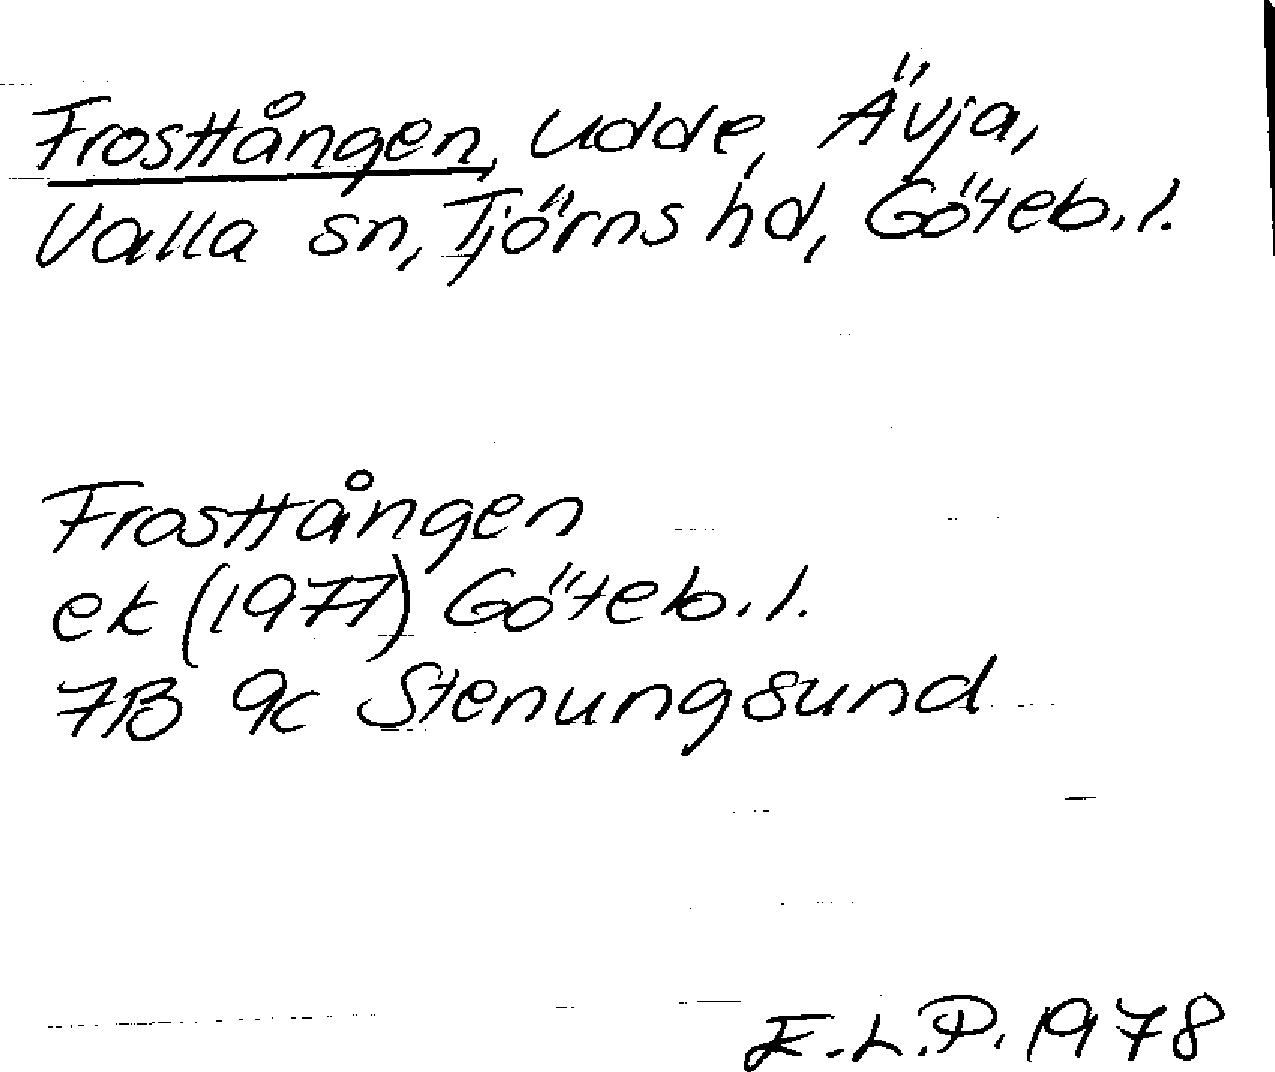 Frosttången, udde, Ävja,
Valla sn, Tjörns hd, Göteb.l.
Frosttången
ek (1977) Göteb.l.
7B 9c Stenungsund
E.L.P. 1978